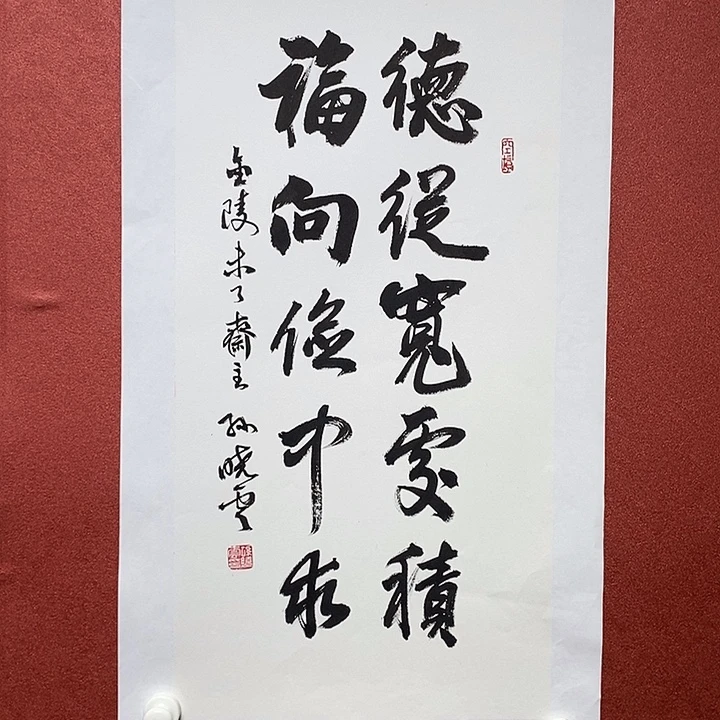 德從寬處積
福向儉中求
金陵未了齋主 孙晓雲